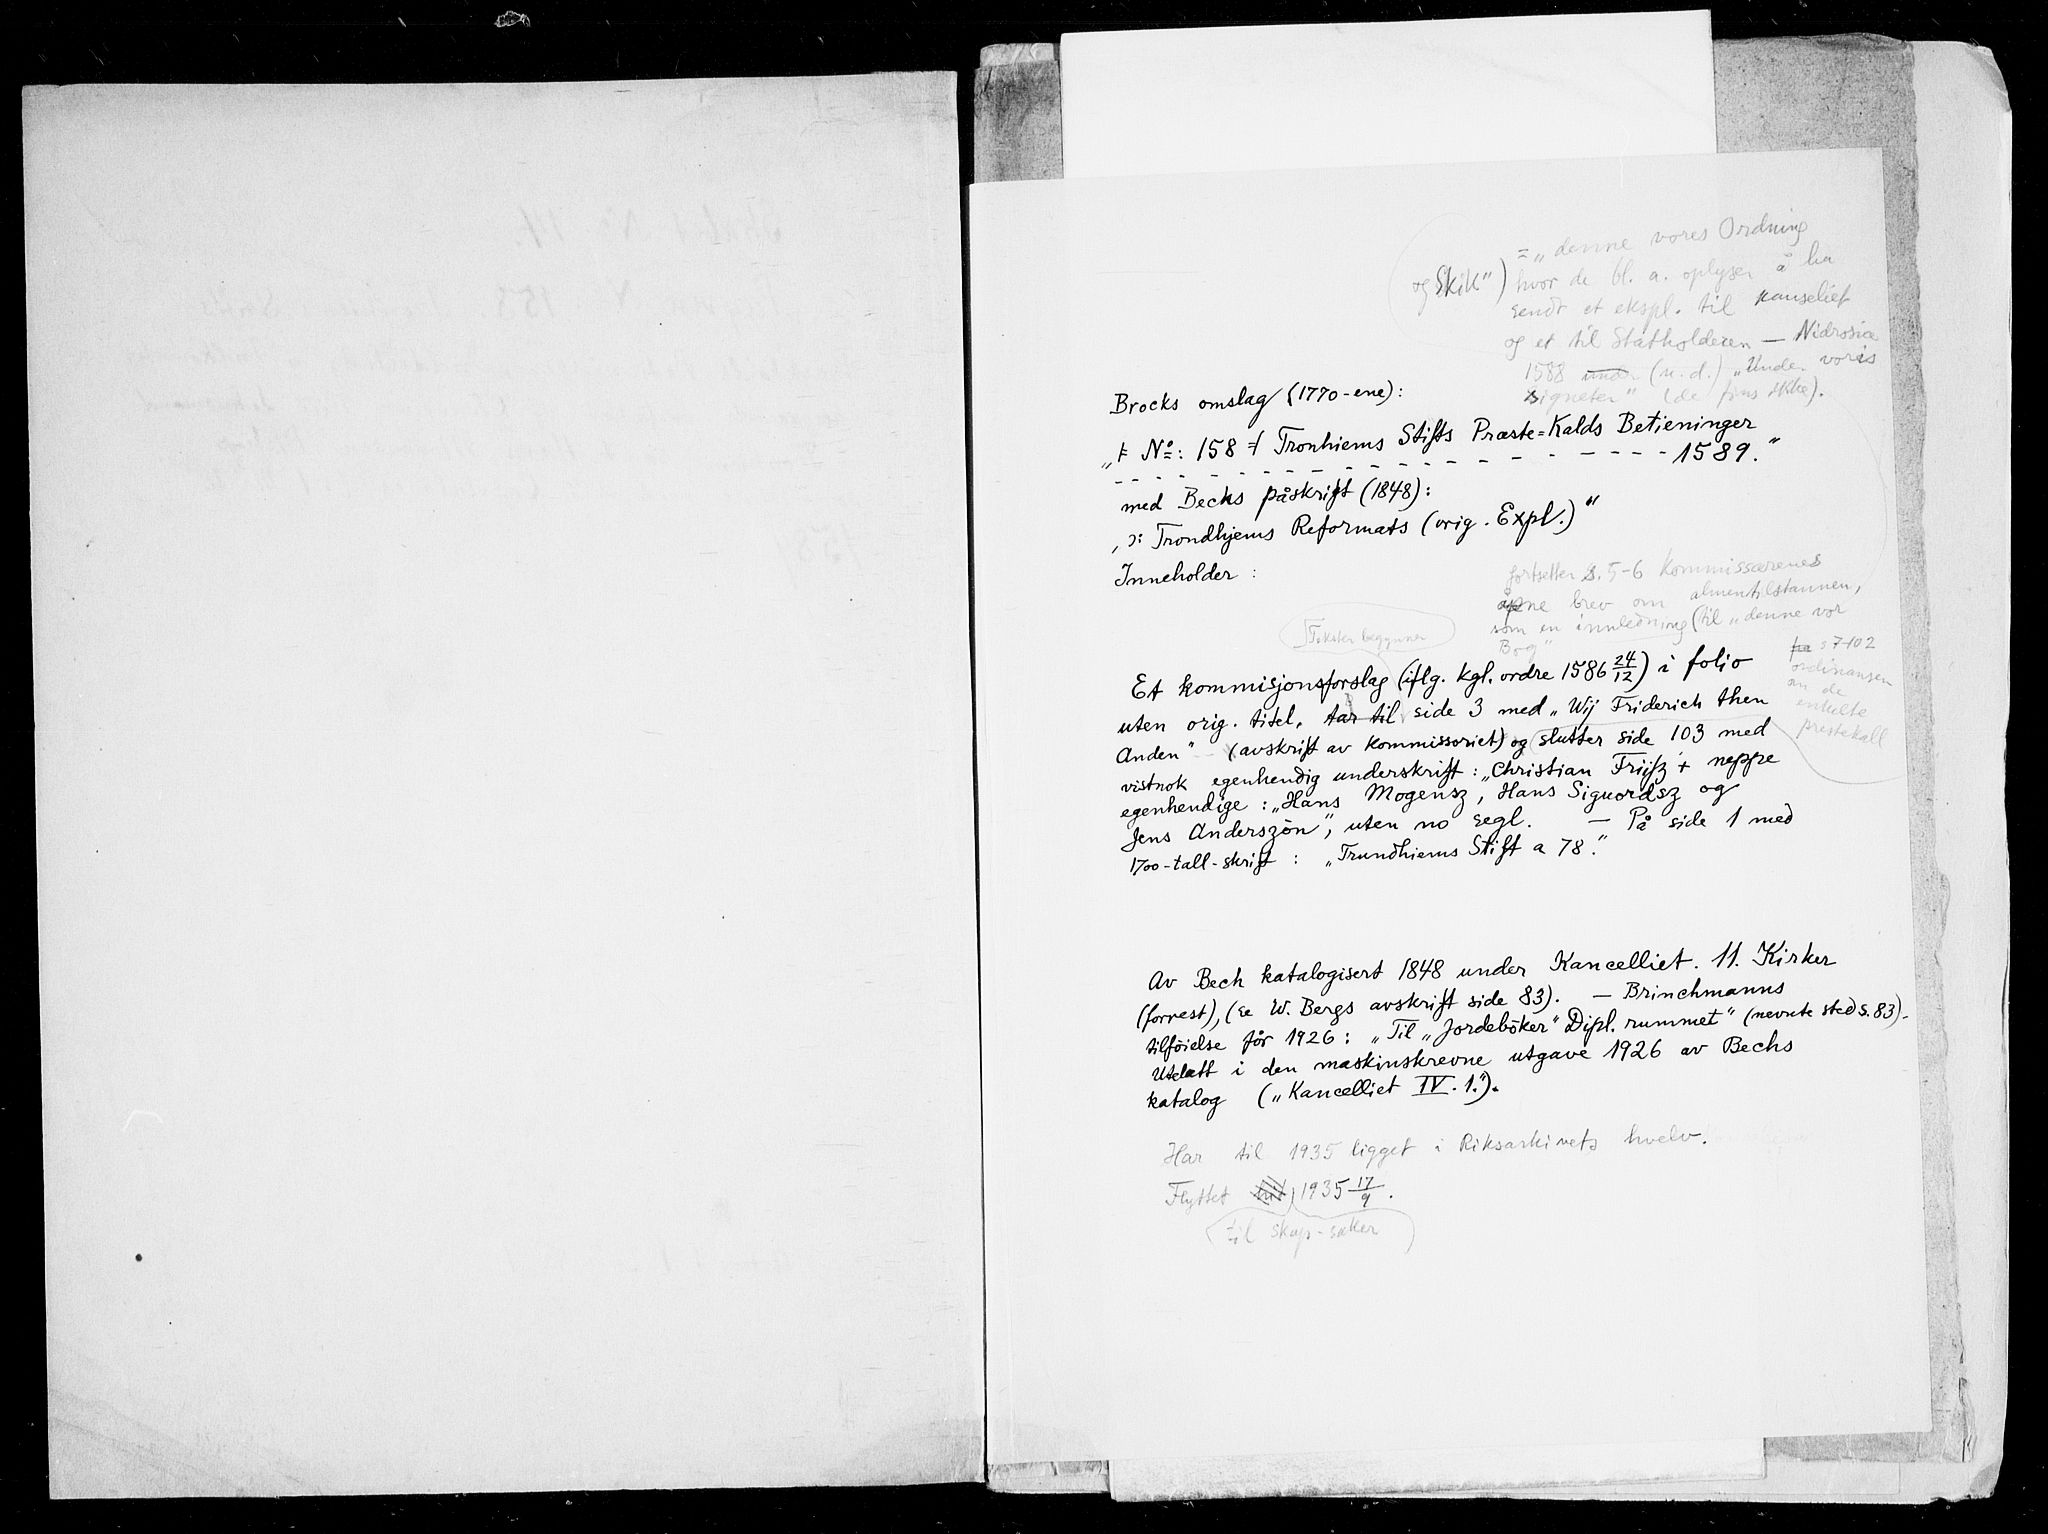 = „denne vores Ordning
og Skik") hvor de bl. a. oplyser å ha
sendt et ekspl. til kanseliet
og et til Statholderen — Nidrosiæ
1588 under (u. d.) „Under voris
signeter" (de fins ikke).
Brocks omslag (1770-ene):
„⊧ No: 158 ⫤ Tronhiems Stifts Præste=Kalds Betieninger
- - - - - - - - - - - - - - - - - - - 1589."
med Bechs påskrift (1848):
„ɔ: Trondhjems Reformats (orig. Expl.)"
Inneholder:
fortsetter s. 5-6 Kommissærenes
åpne brev om almentilstannen,
som en innledning (til „denne vor
Bog"
Teksten begynner
fra s 7-102
ordinansen
om de
enkelte
prestekall
Et kommisjonsforslag (iflg. kgl. ordre 1586 24/12) i folio
uten orig. titel. tar til side 3 med „Wij Friderich then
Anden" (avskrift av kommissoriet) og slutter side 103 med
vistnok egenhendig underskrift: „Christian Frijsz + neppe
egenhendige: „Hans Mogensz, Hans Siguordsz og
Jens Anderszön", uten no segl. — På side 1 med
1700-tall-skrift: „Trundhiems Stift a 78."
Av Bech katalogisert 1848 under Kancelliet. 11. Kirker
(forrest), (se W. Bergs avskrift side 83). — Brinchmanns
tilföielse för 1926: „Til „Jordeböker" Dipl. rummet" (nevnte sted s. 83).
Utelatt i den maskinskrevne utgave 1926 av Bechs
katalog („Kancelliet IV. 1.").
Har til 1935 ligget i Riksarkivets hvelv.
Flyttet hit 1935 17/9.
til skap-saker